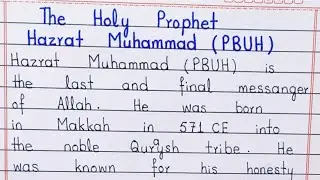 The Holy Prophet
Hazrat Muhammad (PBUH)
Hazrat Muhammad (PBUH) is
the last and final messanger
of Allah. He was born
in Makkah in 571 CE into
the noble Quraysh tribe. He
was known for his honesty